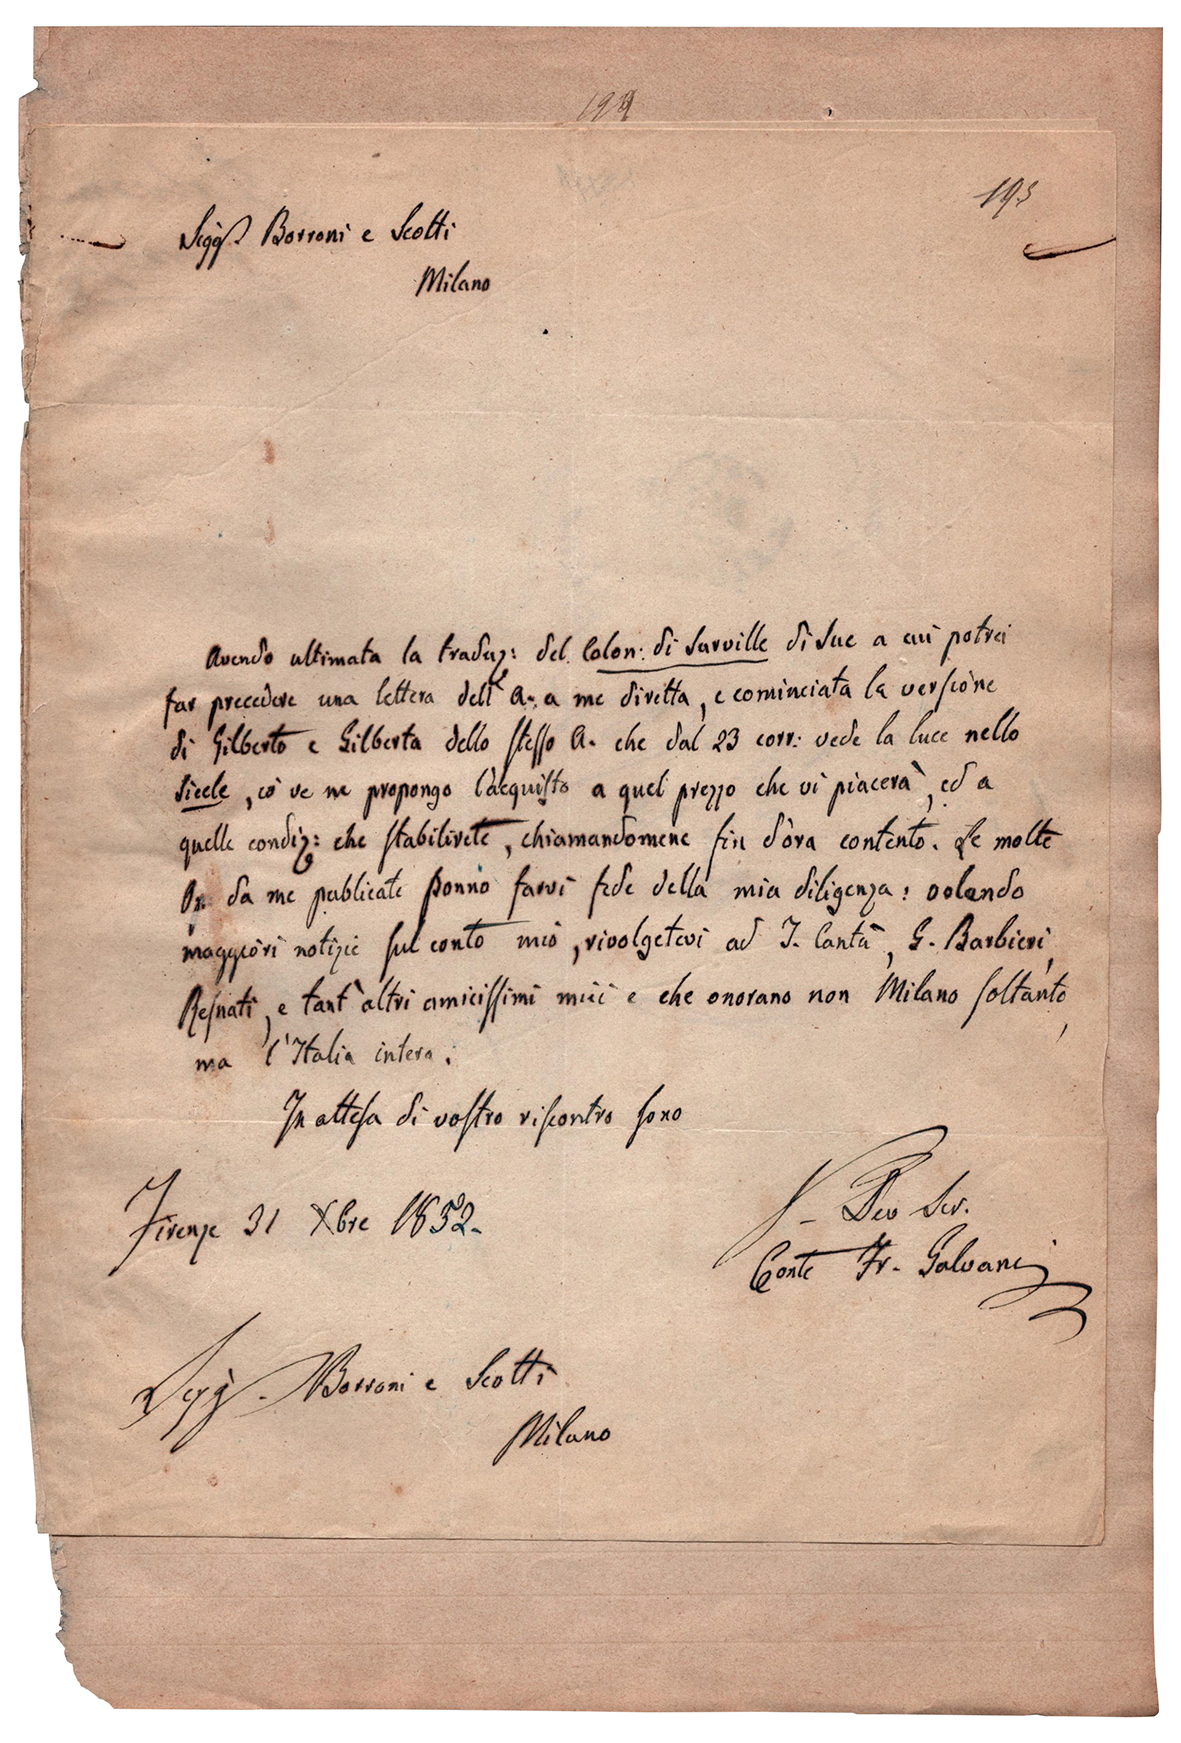 199
193
Sigg.i Borroni e Scotti
Milano
Avendo ultimata la traduz: del Colon: di Surville di Sue a cui potrei
far precedere una lettera dell'A. a me diretta, e cominciata la versione
di Gilberto e Gilberta dello stesso A. che dal 23 corr: vede la luce nello
Siecle, io ve ne propongo l'acquisto a quel prezzo che vi piacerà, ed a
quelle condiz: che stabilirete, chiamandomene fin d'ora contento. Le molte
Op. da me publicate ponno farvi fede della mia diligenza: volendo
maggiori notizie sul conto mio, rivolgetevi ad I. Cantù, G. Barbieri,
Resnati, e tant'altri amicissimi miei e che onorano non Milano soltanto,
ma l'Italia intera.
In attesa di vostro riscontro sono
Firenze 31 Xbre 1852.
V. Dev Ser.
Conte Fr. Galvani
Sigg. Borroni e Scotti
Milano